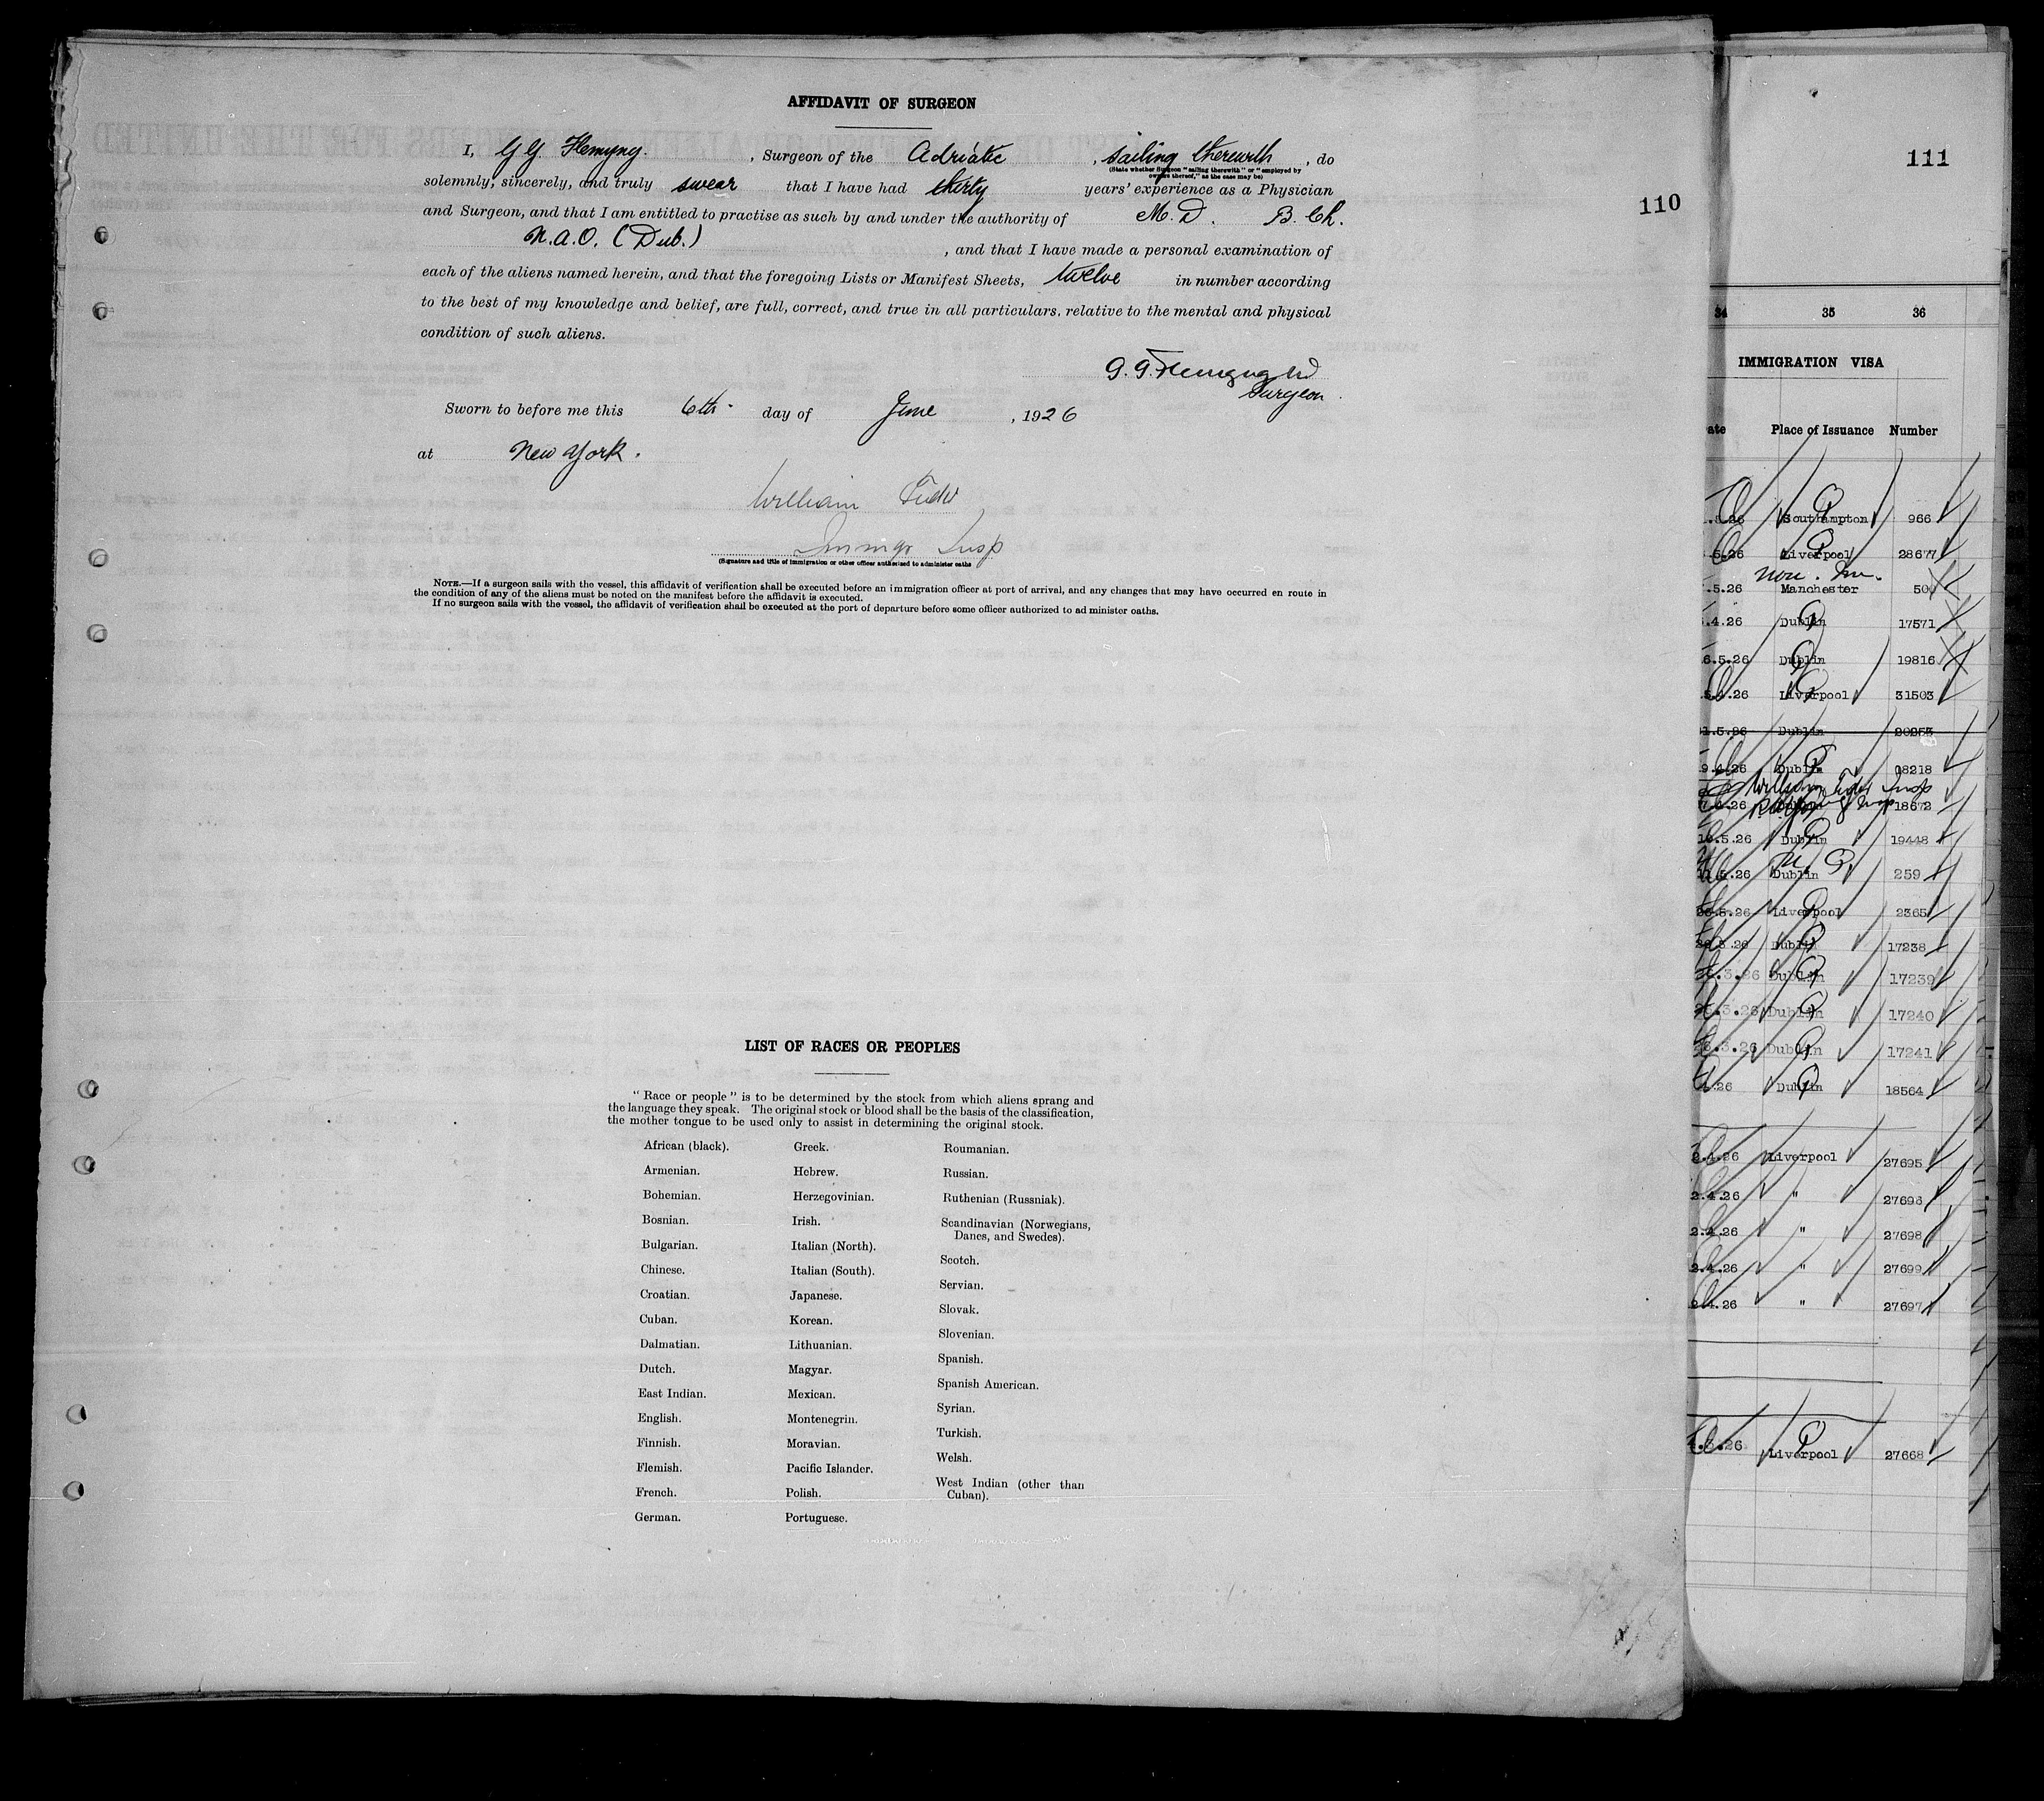 AFFIDAVIT OF SURGEON
I, G G Flemyng. , Surgeon of the Adriatic , sailing therewith , do
(State whether Surgeon "sailing therewith" or "employed by
owners thereof," as the case may be)
solemnly, sincerely, and truly swear that I have had thirty years' experience as a Physician
and Surgeon, and that I am entitled to practise as such by and under the authority of M.D. B.Ch.
N.A.O. (Dub.) , and that I have made a personal examination of
each of the aliens named herein, and that the foregoing Lists or Manifest Sheets, twelve in number according
to the best of my knowledge and belief, are full, correct, and true in all particulars, relative to the mental and physical
condition of such aliens.
G. G. Flemyng
Surgeon.
Sworn to before me this 6th day of June , 1926
at New York.
William
Immgr Insp
(Signature and title of immigration or other officer authorized to administer oaths
NOTE.—If a surgeon sails with the vessel, this affidavit of verification shall be executed before an immigration officer at port of arrival, and any changes that may have occurred en route in
the condition of any of the aliens must be noted on the manifest before the affidavit is executed.
If no surgeon sails with the vessel, the affidavit of verification shall be executed at the port of departure before some officer authorized to ad minister oaths.
LIST OF RACES OR PEOPLES
"Race or people" is to be determined by the stock from which aliens sprang and
the language they speak. The original stock or blood shall be the basis of the classification,
the mother tongue to be used only to assist in determining the original stock.
African (black).
Armenian.
Bohemian.
Bosnian.
Bulgarian.
Chinese.
Croatian.
Cuban.
Dalmatian.
Dutch.
East Indian.
English.
Finnish.
Flemish.
French.
German.
Greek.
Hebrew.
Herzegovinian.
Irish.
Italian (North).
Italian (South).
Japanese.
Korean.
Lithuanian.
Magyar.
Mexican.
Montenegrin.
Moravian.
Pacific Islander.
Polish.
Portuguese.
Roumanian.
Russian.
Ruthenian (Russniak).
Scandinavian (Norwegians,
Danes, and Swedes).
Scotch.
Servian.
Slovak.
Slovenian.
Spanish.
Spanish American.
Syrian.
Turkish.
Welsh.
West Indian (other than
Cuban).
110
111
34 35 36
IMMIGRATION VISA
ate Place of Issuance Number
.26 Southampton 966
.5.26 Liverpool 28677
non. Im.
.5.26 Manchester 500
.4.26 Dublin 17571
6.5.26 Dublin 19816
5.4.26 Liverpool 31503
1.5.26 Dublin 20255
9.4.26 Dublin 18218
William Insp
.26 18672
.5.26 Dublin 19448
.5.26 Dublin 259
.5.26 Liverpool 2365
.3.26 Dublin 17238
.3.26 Dublin 17239
.3.26 Dublin 17240
.3.26 Dublin 17241
.26 Dublin 18564
2.4.26 Liverpool 27695
2.4.26 " 27696
2.4.26 " 27698
2.4.26 " 27699
2.4.26 " 27697
.3.26 Liverpool 27668